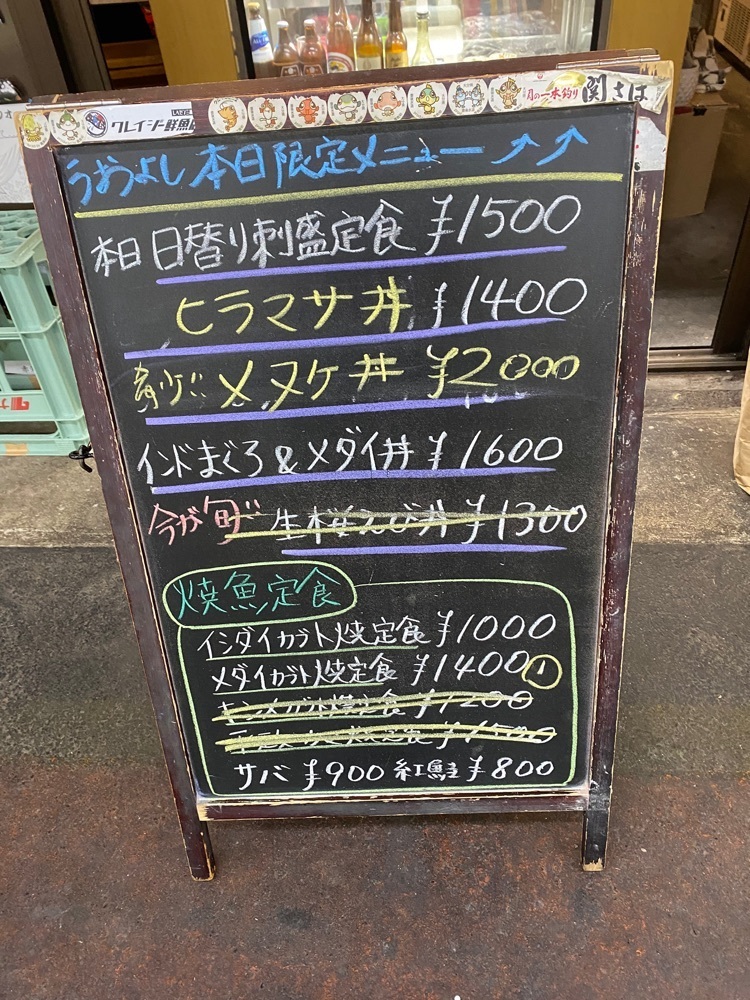 クレイジー鮮魚
月の一本釣り 関さば
うおよし本日限定メニュー
本日 日替り刺盛定食 ¥1500
ヒラマサ丼 ¥1400
メヌケ丼 ¥2000
インドまぐろ&メダイ丼 ¥1600
今が旬 生桜えび丼 ¥1300
焼魚定食
イシダイカブト焼定食 ¥1000
メダイカブト焼定食 ¥1400 1
キンメカブト焼定食 ¥1200
¥1500
サバ ¥900 紅鮭 ¥800